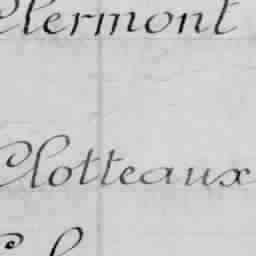 Clermont
Clotteaux